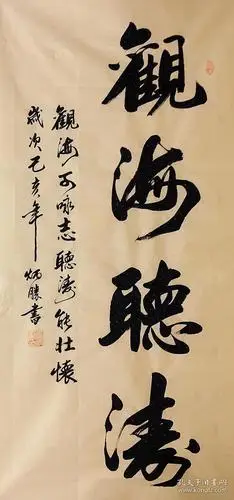 觀海聽濤
觀海可詠志聽濤能壯懷
歲次己亥年
炳勝書
孔夫子旧书网